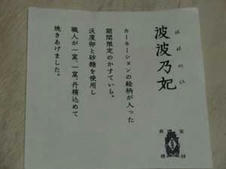 波波乃妃
カーネーションの絵柄が入った
期間限定のかすていら。
沃度卵と砂糖を使用し
職人が一窯、一窯、丹精込めて
焼きあげました。